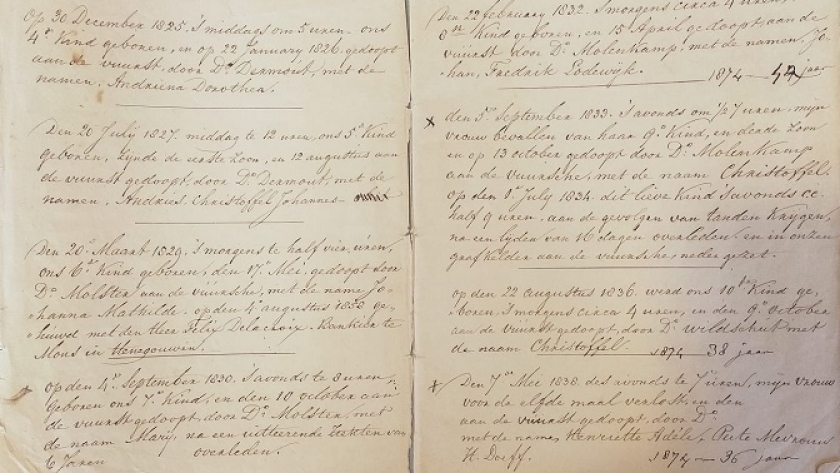 Op 30 December 1825. 's middags om 5 uren. ons
4e Kind geboren, en op 22 January 1826. gedoopt
aan de vuurst. door Ds. Dermout, met de
namen. Andriena Dorothea.
Den 20 July 1827. middag te 12 uren, ons 5e Kind
geboren, zijnde de eerste Zoon, en 12 augustus aan
de vuurst gedoopt, door Ds. Dermout, met de
namen. Andries. Christoffel Johannes
Den 20e Maart 1829. 's morgens te half vier, uren,
ons 6e Kind geboren, den 17e Mei. gedoopt door
Ds. Molster aan de vuursche, met de name Jo-
hanna Mathilde. op den 4e augustus 1858 ge-
huwd met den Heer Felix Delacroix. Bankier te
Mons in Henegouwen.
op den 4e September 1830. 's avonds te 8 uren,
geboren ons 7e Kind, en den 10 october aan
de vuurst gedoopt, door Ds. Molster, met
de naam Mary, na een uitteerende ziekten van
6 Jaren overleden.
Den 22 february 1832. 's morgens circa 4 uren,
8ste Kind geboren, en 15 April gedoopt, aan de
vuurst door Ds. Molenkamp, met de namen, Jo-
han, Fredrik Lodewijk. 1874 - 42 jaar
x den 5e September 1833. 's avonds om 1/2 7 uren, mijn
vrouw bevallen van haar 9e Kind, en derde Zoon
en op 13 october gedoopt door Ds. Molenkamp
aan de vuursche, met de naam Christoffel.
op den 1e July 1834. dit lieve Kind 's avonds ce.
half 9 uren. aan de gevolgen van tanden Krijgen,
na een lijden van 16 dagen overleden. en in onzen
grafkelder aan de vuursche, neder gezet.
op den 22 augustus 1836. werd ons 10de Kind ge-
boren, 's morgens circa 4 uren, en den 9e october
aan de vuurst gedoopt, door Ds. Wildschut met
de naam Christoffel. 1874 38 jaar
Den 7e Mei 1838. des avonds te 7 uren, mijn vrouw
voor de elfde maal verlost, en den
aan de vuurst gedoopt, door Ds.
met de name, Henriette Adèle, Pete Mevrouw
H. Dorff. 1874 - 36 jaar